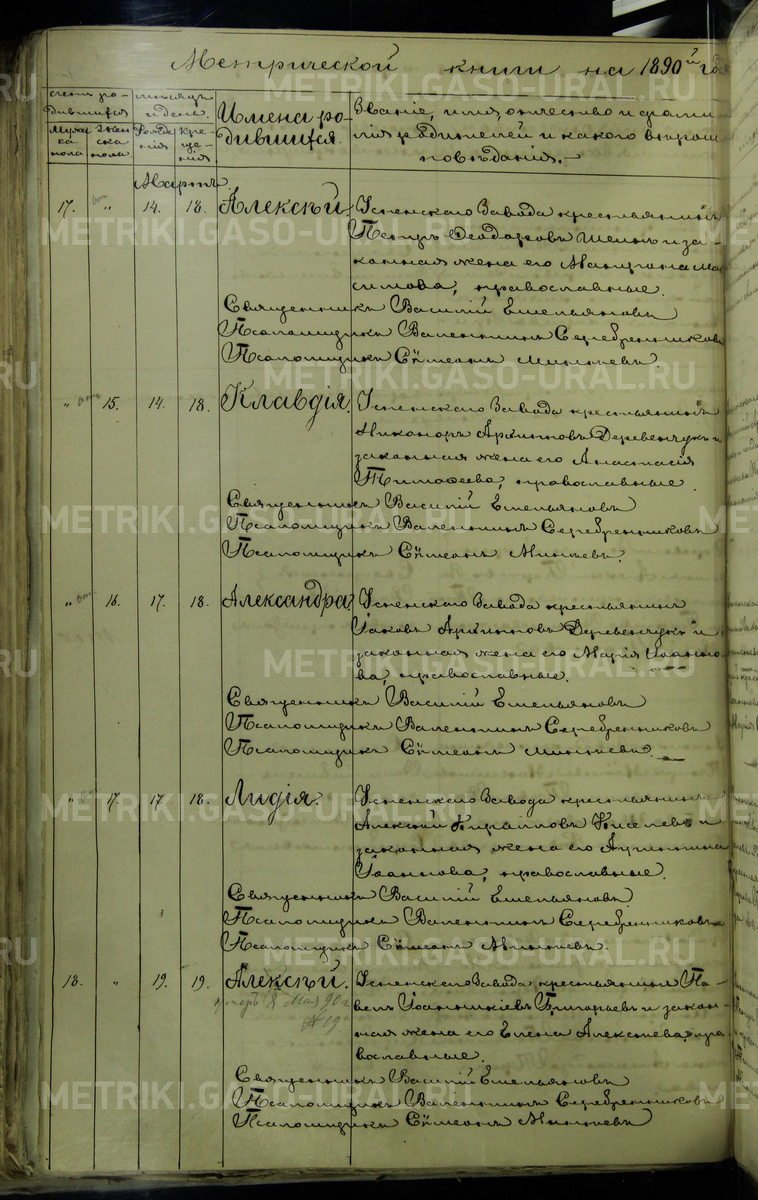 Метрической книги на 1890й го
Счетъ ро-
дившихся
Мужес
ка
пола
Жен
ска
пола
Месяцъ
и день
Рожде
нія
кре
ще
нія
Имена ро-
дившихся.
Званіе, имя, отчество и фами
лія родителей и какого вероис
поведанія.
Мартъ
17. " 14. 18. Алексѣй. Успенскаго Завода крестьянинъ
Петръ Ѳеодоровъ и за-
конная жена его Матрона Ма
симова, православные.
Священникъ Василій Емельяновъ
Псаломщикъ Валентинъ Серебренниковъ
Псаломщикъ Сѵмеонъ Минѣевъ.
" 15. 14. 18. Клавдія. Успенскаго Завода крестьянинъ
Никоноръ Архиповъ Деревенчукъ и
законная жена его Анастасія
Тимоѳеева, православные.
Священникъ Василій Емельяновъ
Псаломщикъ Валентинъ Серебренниковъ
Псаломщикъ Сѵмеонъ Минѣевъ.
" 16. 17. 18. Александра Успенскаго Завода крестьянинъ
Іаковъ Архиповъ Деревенчукъ и
законная жена его Марія Іоанно-
ва, православные.
Священникъ Василій Емельяновъ
Псаломщикъ Валентинъ Серебренниковъ
Псаломщикъ Сѵмеонъ Минѣевъ.
" 17. 17. 18. Лидія. Успенскаго Завода крестьянинъ
Алексѣй Кирилловъ Киселевъ и
законная жена его Агриппина
Іоаннова, православные.
Священникъ Василій Емельяновъ
Псаломщикъ Валентинъ Серебренниковъ
Псаломщикъ Сѵмеонъ Минѣевъ.
18. " 19. 19. Алексѣй. Успенскаго Завода крестьянинъ Па-
велъ Іоанникіевъ Григорьевъ и закон-
ная жена его Елена Алексѣева, пра
вославные.
умеръ 8 Мая 90 г
№ 19
Священникъ Василій Емельяновъ
Псаломщикъ Валентинъ Серебренниковъ
Псаломщикъ Сѵмеонъ Минѣевъ
METRIKI.GASO-URAL.RU